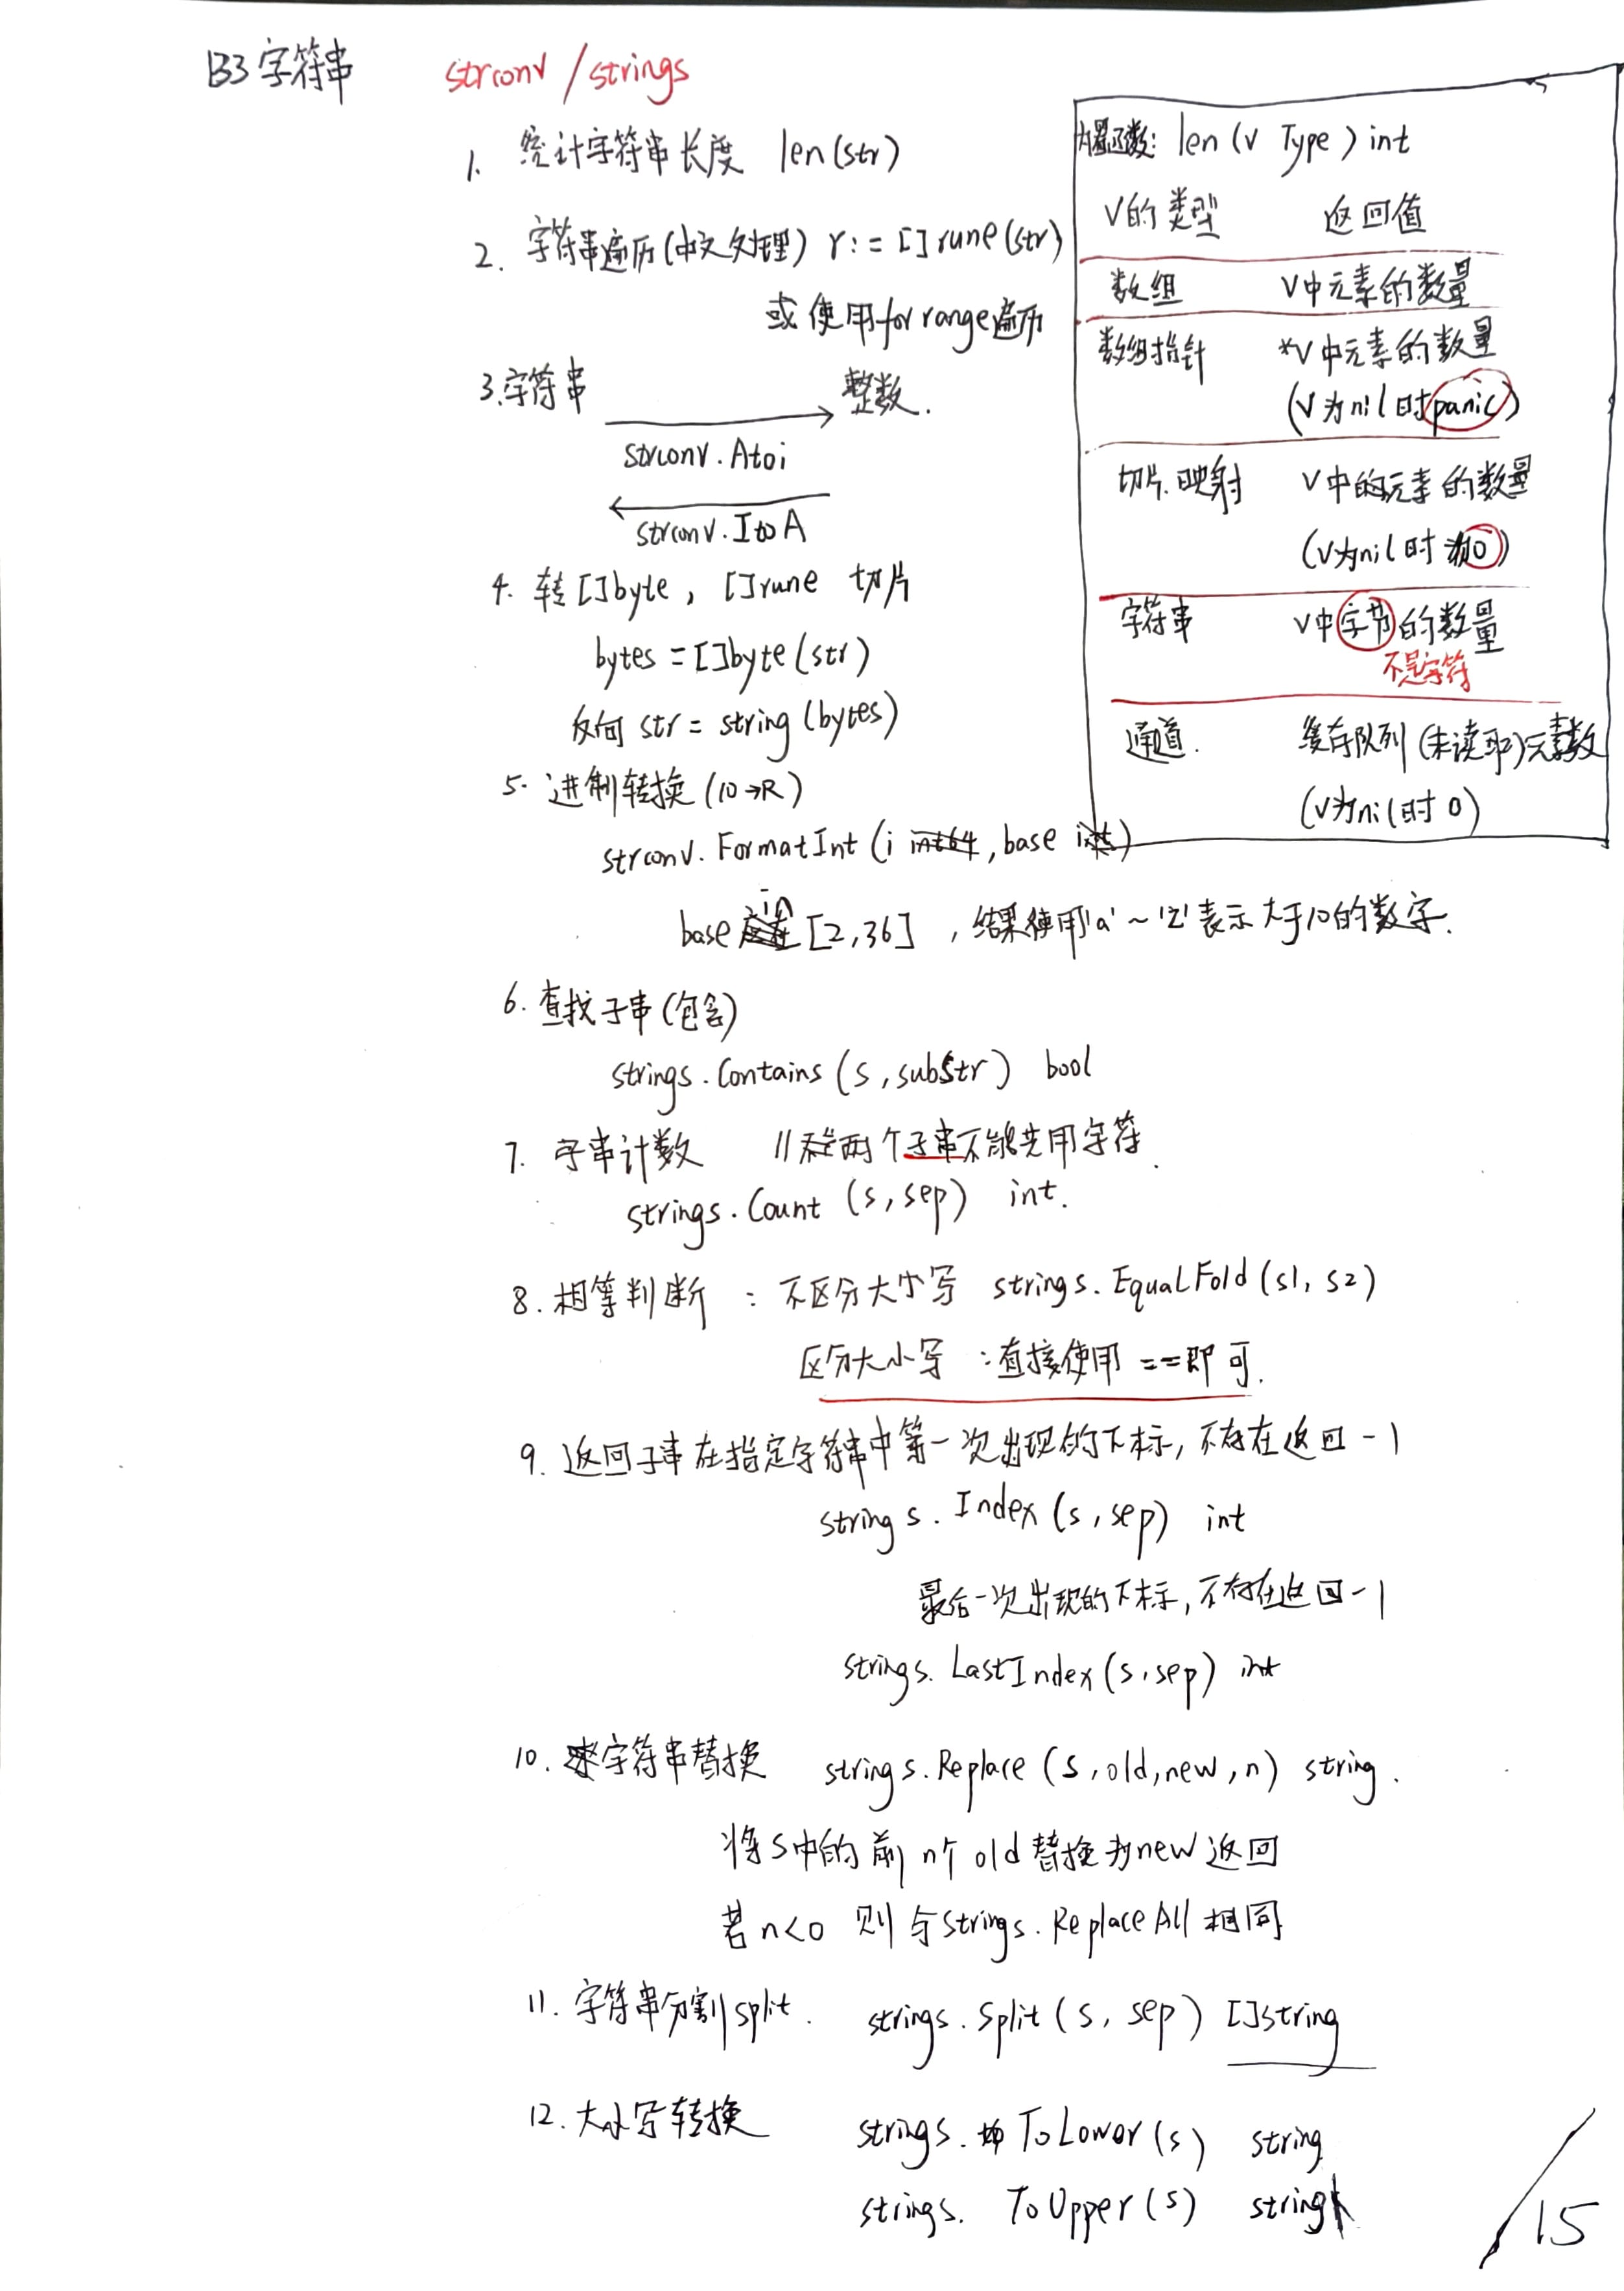 B3 字符串 strconv / strings
1. 统计字符串长度 len(str)
2. 字符串遍历(中文处理) r:= []rune(str)
或使用for range遍历
3.字符串 整数.
strconv.Atoi
strconv.ItoA
4. 转[]byte, []rune 切片
bytes = []byte(str)
反向 str = string(bytes)
5. 进制转换(10→R)
strconv.FormatInt(i int64, base int)
base in [2,36] , 结果使用'a'~'z'表示大于10的数字.
6. 查找子串(包含)
strings.Contains(s, substr) bool
7. 字串计数 // 两个子串不能共用字符.
strings.Count (s, sep) int.
8. 相等判断 : 不区分大小写 strings.EqualFold(s1, s2)
区分大小写 : 直接使用 ==即可.
9. 返回子串在指定字符串中第一次出现的下标, 不存在返回 -1
strings.Index (s, sep) int
最后一次出现的下标, 不存在返回 -1
strings.LastIndex(s, sep) int
10. 字符串替换 strings.Replace (s, old, new, n) string.
将s中的前n个old替换为new返回
若n<0 则与strings.ReplaceAll相同
11. 字符串分割split. strings.Split(s, sep) []string
12. 大小写转换 strings.ToLower(s) string
strings.ToUpper(s) string
内置函数: len (v Type) int
V的类型 返回值
数组 V中元素的数量
数组指针 *V中元素的数量
(V为nil时panic)
切片.映射 V中的元素的数量
(V为nil时为0)
字符串 V中字节的数量
不是字符
通道. 缓存队列(未读取)元素数
(V为nil时 0)
/15